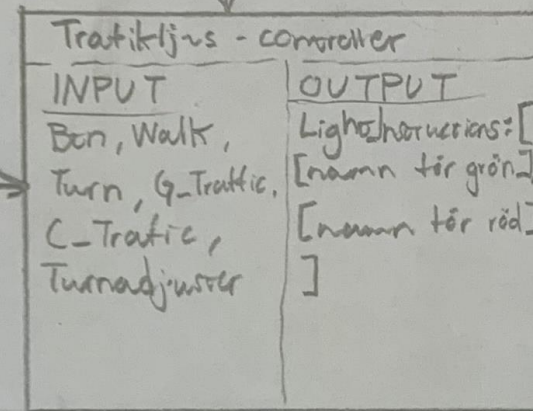 Trafikljus - controller
INPUT
Btn, Walk,
Turn, G_Traffic,
C_Trafic,
Turnadjuster
OUTPUT
LightInstructions: [
[namn för grön]
[namn för röd]
]